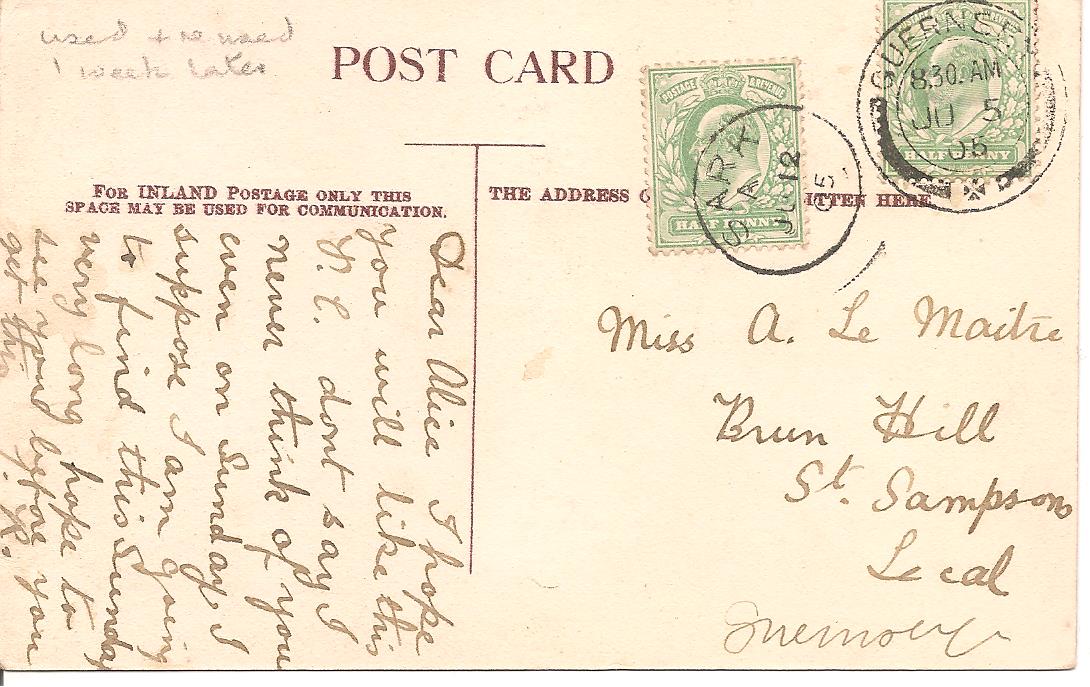 used + reused
1 week later
POST CARD
FOR INLAND POSTAGE ONLY THIS
SPACE MAY BE USED FOR COMMUNICATION.
THE ADDRESS O ITTEN HERE
POSTAGE REVENUE
HALF PENNY
SARK
A
JU 12
05
GUERNSEY
8 30. AM
JU 5
05
HALF PENNY
Dear Alice I hope
you will like this
P.C. dont say I
never think of you
even on Sunday. I
suppose I am going
to find this Sunday
very long hope to
see you before you
get this
R.
Miss A. Le Maitre
Brun Hill
St. Sampsons
Local
Guernsey